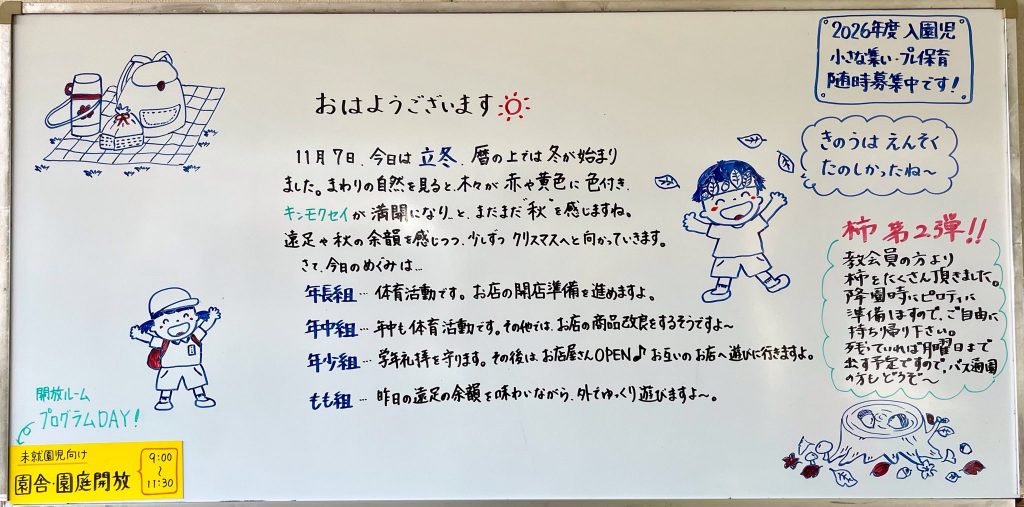 おはようございます
11月7日、今日は 立冬、暦の上では 冬が始まり
ました。まわりの自然を見ると、木々が 赤や黄色に 色付き、
キンモクセイが 満開になり、と、まだまだ"秋"を感じますね。
遠足や秋の余韻を感じつつ、少しずつ クリスマスへと向かっていきます。
さて、今日のめぐみは…
年長組… 体育活動です。お店の開店準備を進めますよ。
年中組… 年中も体育活動です。その他では、お店の商品改良をするそうですよ〜
年少組… 学年礼拝を守ります。その後は、お店屋さんOPEN♪お互いのお店へ遊びに行きますよ。
もも組… 昨日の遠足の余韻を味わいながら、外でゆっくり遊びますよ〜。
2026年度 入園児
小さな集い・プレ保育
随時募集中です!
きのうは えんそく
たのしかったね〜
柿 第2弾!!
教会員の方より
柿をたくさん頂きました。
降園時にピロティに
準備しますので、ご自由に
持ち帰り下さい。
残っていれば月曜日まで
出す予定ですので、バス通園
の方も どうぞ〜
開放ルーム
プログラムDAY!
未就園児向け
園舎・園庭開放
9:00
〜
11:30